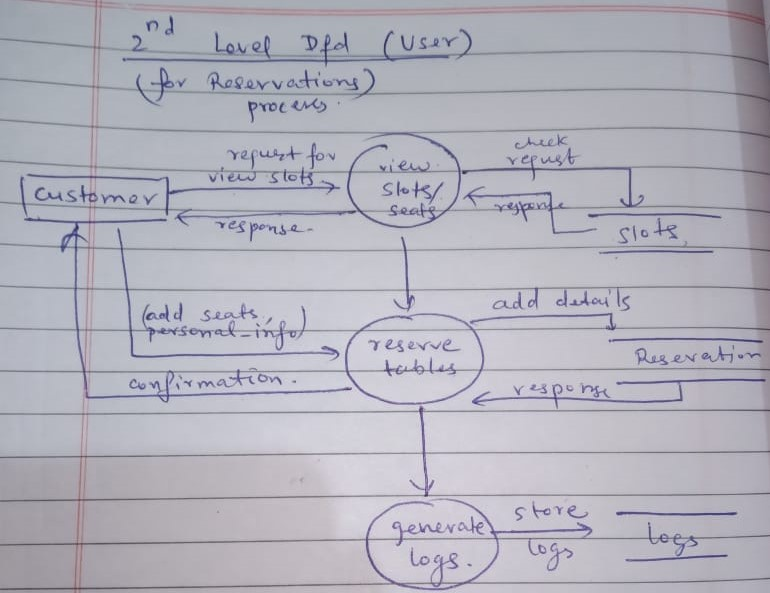 2nd Level Dfd (User)
(for Reservations)
process.
request for
view slots
customer
response.
view
slots/
seats
check
request
response
slots
(add seats,
personal-info)
confirmation.
reserve
tables
add details
Reservation
response
generate
logs.
store
logs
logs